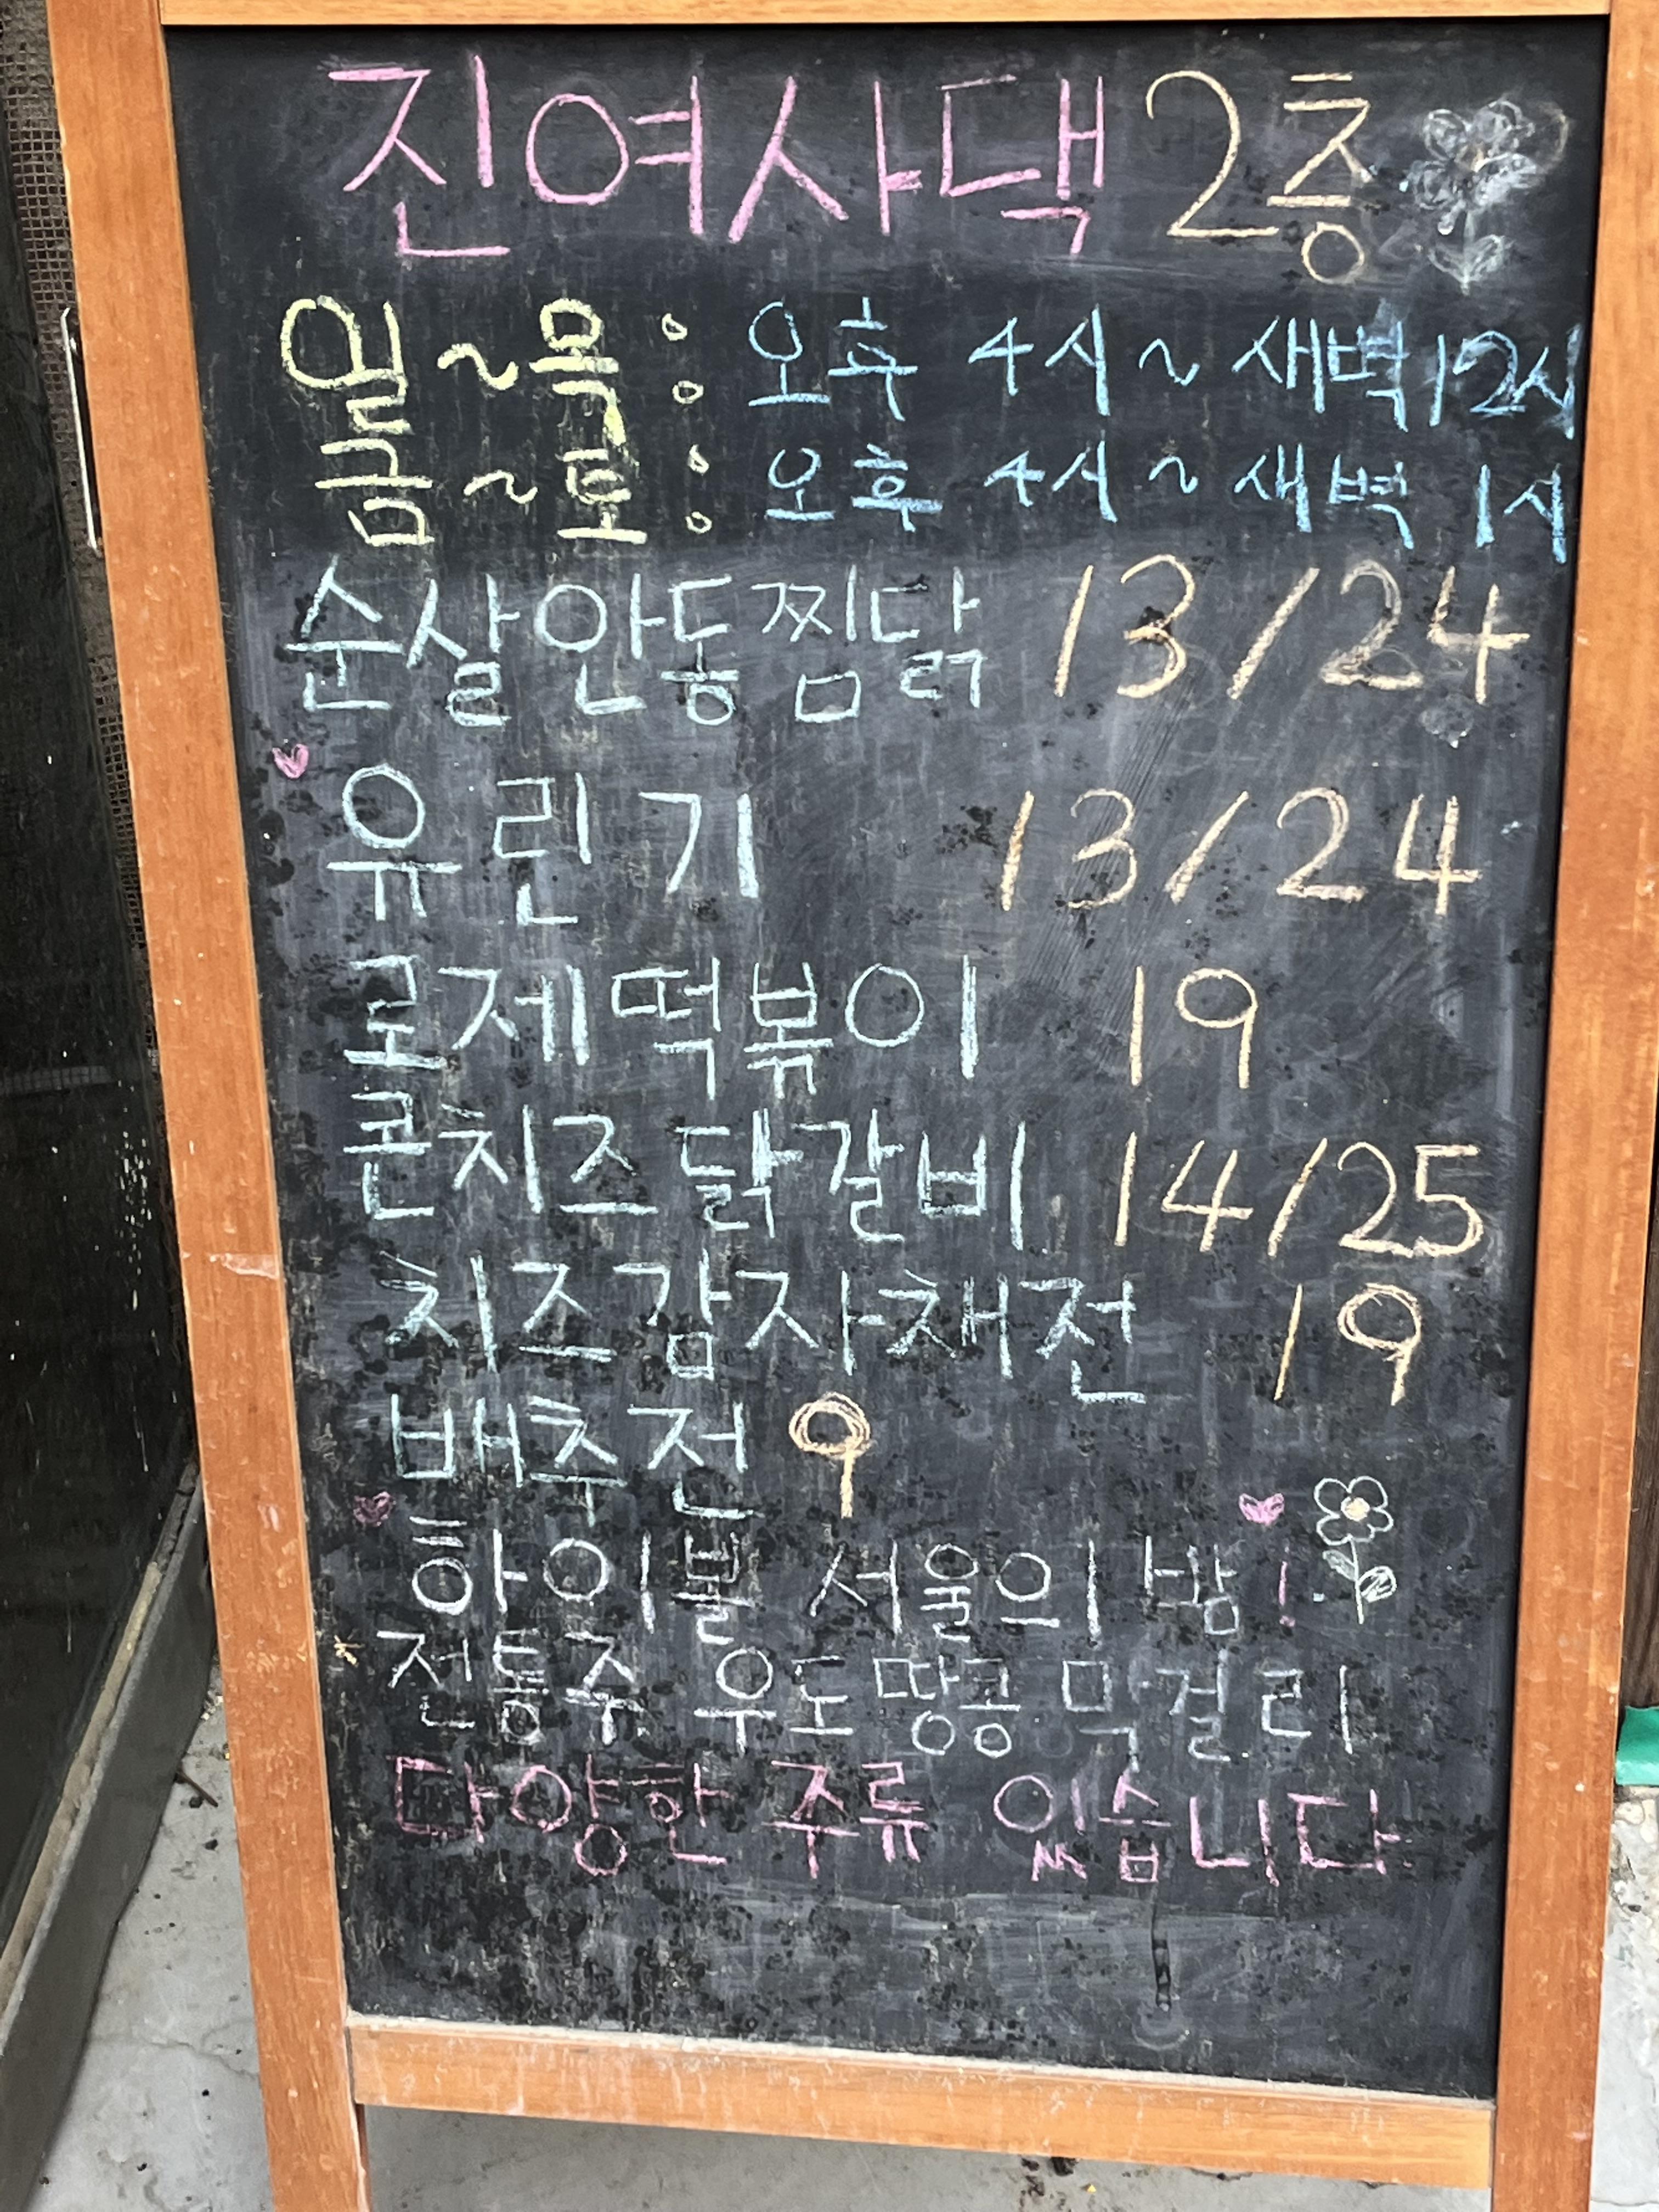 진여사댁 2층
일~목 : 오후 4시 ~ 새벽 12시
금~토 : 오후 4시 ~ 새벽 1시
순살안동찜닭 13/24
유린기 13/24
로제떡볶이 19
콘치즈닭갈비 14/25
치즈감자채전 19
배추전 9
하이볼 서울의 밤!
전통주 우도땅콩 막걸리
다양한 주류 있습니다